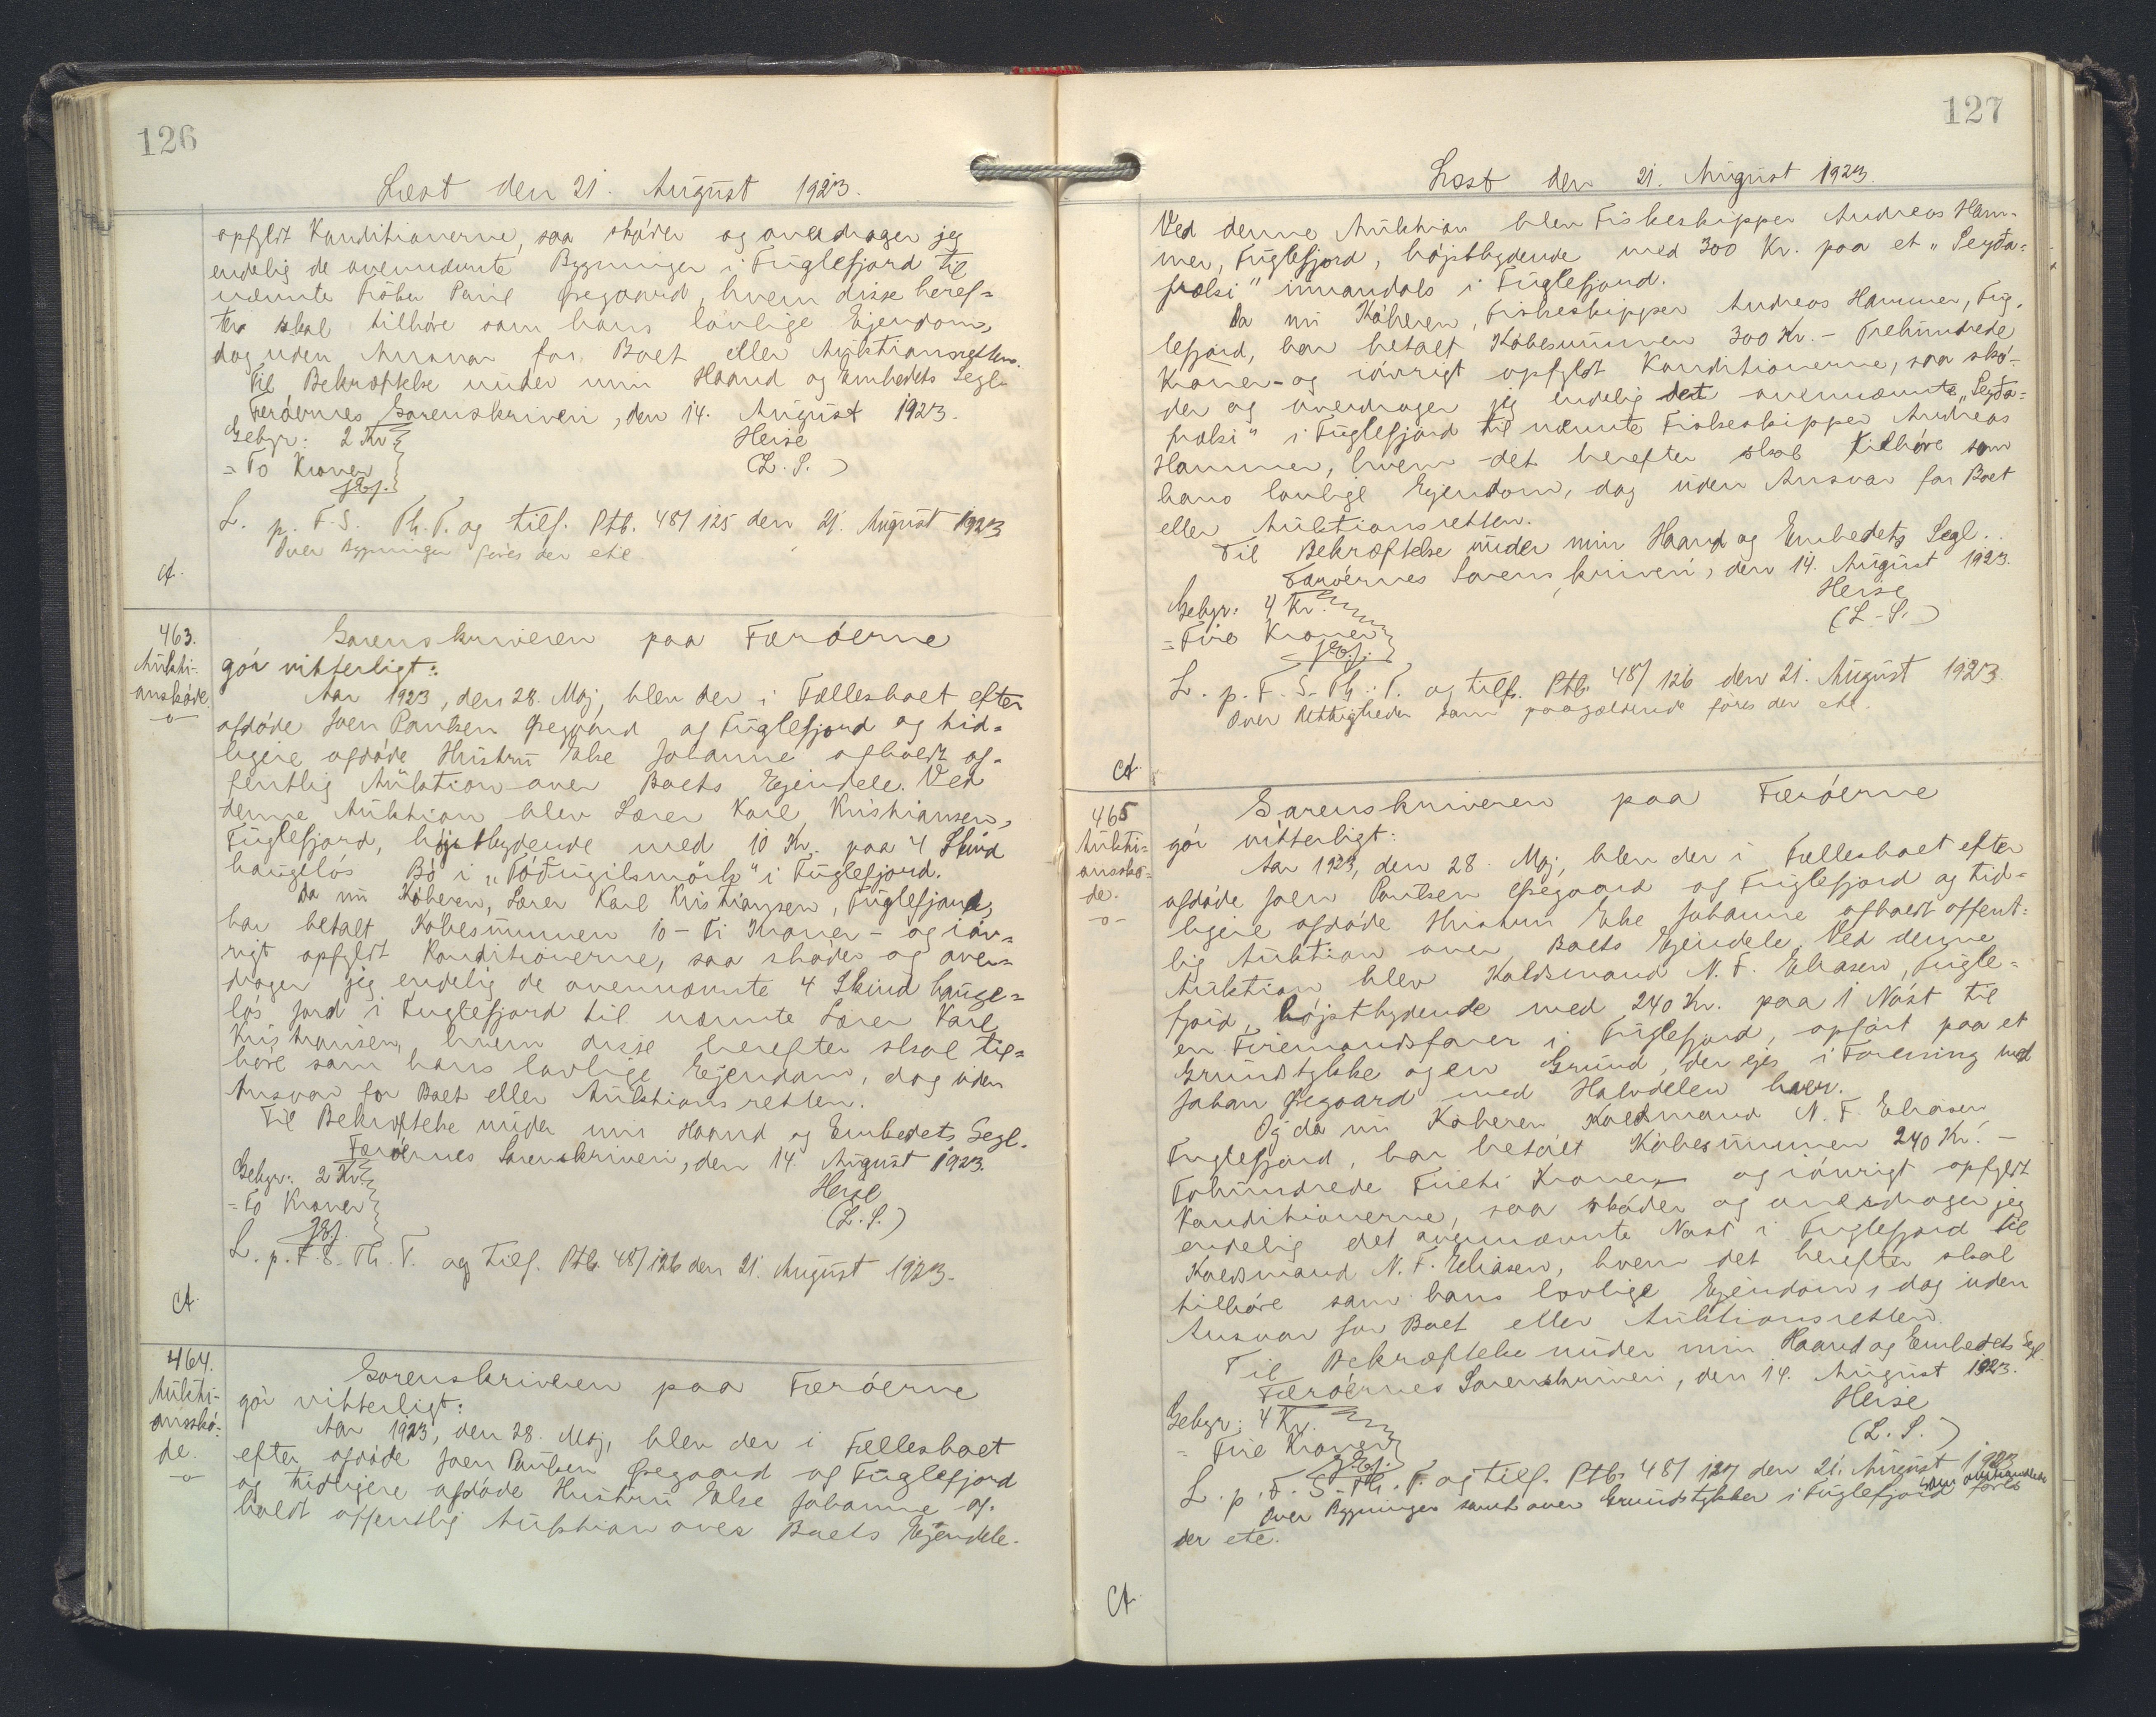 126
Læst den 21. August 1923.
opfyldt Konditionerne, saa skøder og overdrager jeg
endelig de ovennævnte Bygninger i Fuglefjord til
nævnte Køber Paul Øregaard, hvem disse heref=
ter skal tilhøre som hans lovlige Ejendom,
dog uden Ansvar for Boet eller Auktionsretten.
Til Bekræftelse under min Haand og Embedets Segl.
Færøernes Sorenskriveri, den 14. August 1923.
Gebyr: 2 Kr Heise
= To Kroner (L. S.)
L. p. F. S. Th. T. og tilf. Ptb. 48/125 den 21. August 1923
Over Bygninger føres der etc
463.
Aukti-
onsskøde
Sorenskriveren paa Færøerne
gør vitterligt:
Aar 1923, den 28. Maj, blev der i Fællesboet efter
afdøde Joen Paulsen Øregaard af Fuglefjord og tid=
ligere afdøde Hustru Else Johanne afholdt of=
fentlig Auktion over Boets Ejendele. Ved
denne Auktion blev Lærer Karl Kristiansen,
Fuglefjord, højstbydende med 10 Kr. paa 4 Skind
haugeløs Bø i "Tóðugilsmörk" i Fuglefjord.
Da nu Køberen, Lærer Karl Kristiansen, Fuglefjord,
har betalt Købesummen 10 - Ti Kroner - og iøv=
rigt opfyldt Konditionerne, saa skøder og over=
drager jeg endelig de ovennævnte 4 Skind hauge=
løs Jord i Fuglefjord til nævnte Lærer Karl
Kristiansen, hvem disse herefter skal til=
høre som hans lovlige Ejendom, dog uden
Ansvar for Boet eller Auktionsretten.
Til Bekræftelse under min Haand og Embedets Segl.
Færøernes Sorenskriveri, den 14. August 1923.
Gebyr: 2 Kr. Heise
= To Kroner (L. S.)
L. p. F. S. Th. T. og tilf. Ptb. 48/126 den 21. August 1923.
464.
Aukti-
onsskø=
de.
Sorenskriveren paa Færøerne
gør vitterligt:
Aar 1923, den 28. Maj, blev der i Fællesboet
efter afdøde Joen Paulsen Øregaard af Fuglefjord
og tidligere afdøde Hustru Else Johanne af=
holdt offentlig Auktion over Boets Ejendele.
127
Læst den 21. August 1923.
Ved denne Auktion blev Fiskeskipper Andreas Ham-
mer, Fuglefjord, højstbydende med 300 Kr. paa et "Seyða=
frælsi" innandals i Fuglefjord.
Da nu Køberen, Fiskeskipper Andreas Hammer, Fug-
lefjord, har betalt Købesummen 300 Kr. - Trehundrede
Kroner - og iøvrigt opfyldt Konditionerne, saa skø-
der og overdrager jeg endelig det ovennævnte "Seyða=
frælsi" i Fuglefjord til nævnte Fiskeskipper Andreas
Hammer, hvem det herefter skal tilhøre som
hans lovlige Ejendom, dog uden Ansvar for Boet
eller Auktionsretten.
Til Bekræftelse under min Haand og Embedets Segl.
Færøernes Sorenskriveri, den 14. August 1923.
Gebyr: 4 Kr. Heise
= Fire Kroner (L. S.)
L. p. F. S. Th. T. og tilf. Ptb. 48/126 den 21. August 1923.
Over Rettigheder som paagældende føres der etc.
465
Aukti=
onsskø-
de.
Sorenskriveren paa Færøerne
gør vitterligt:
Aar 1923, den 28. Maj, blev der i Fællesboet efter
afdøde Joen Paulsen Øregaard af Fuglefjord og tid=
ligere afdøde Hustru Else Johanne afholdt offent=
lig Auktion over Boets Ejendele. Ved denne
Auktion blev Kaldsmand N. F. Eliasen, Fugle=
fjord, højstbydende med 240 Kr. paa 1 Nøst til
en Firemandsfarer i Fuglefjord, opført paa et
Grundstykke af en Grund, der ejes i Forening med
Johan Øregaard med Halvdelen hver.
Og da nu Køberen Kaldsmand N. F. Eliasen
Fuglefjord, har betalt Købesummen 240 Kr. -
Tohundrede Fireti Kroner og iøvrigt opfyldt
Konditionerne, saa skøder og overdrager jeg
endelig det ovennævnte Nøst i Fuglefjord til
Kaldsmand N. F. Eliasen, hvem det herefter skal
tilhøre som hans lovlige Ejendom, dog uden
Ansvar for Boet eller Auktionsretten.
Til Bekræftelse under min Haand og Embedets Segl.
Færøernes Sorenskriveri, den 14. August 1923.
Gebyr: 4 Kr. Heise
= Fire Kroner (L. S.)
L. p. F. S. Th. T. og tilf. Ptb. 48/127 den 21. August 1923
Over Bygninger samt over Grundstykker i Fuglefjord som omhandlede føres
der etc.